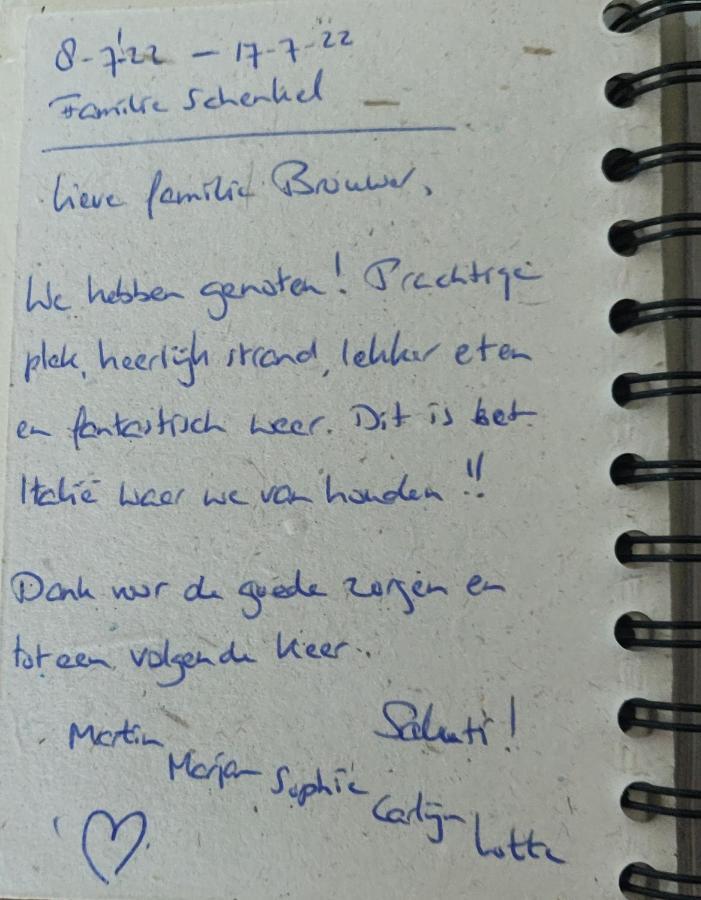 8-7-'22 - 17-7-'22
Familie Schenkel
Lieve familie Brouwer,
We hebben genoten! Prachtige
plek, heerlijk strand, lekker eten
en fantastisch weer. Dit is het
Italië waar we van houden!!
Dank voor de goede zorgen en
tot een volgende keer..
Saluti!
Martin Marjan Sophie Carlijn Lotte